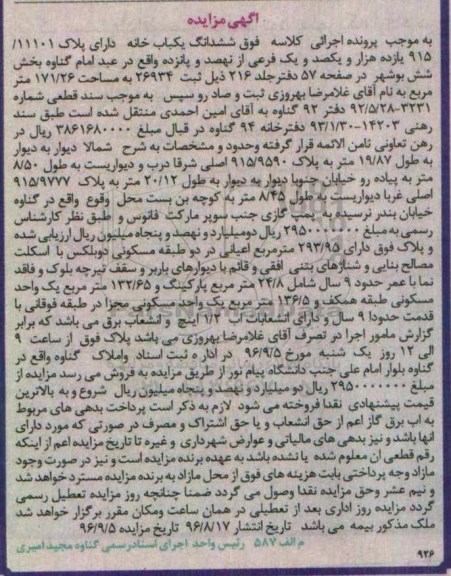 آگهی مزایده
به موجب پرونده اجرائی کلاسه فوق ششدانگ یکباب خانه دارای پلاک ۱۱۱۰۱/
۹۱۵ یازده هزار و یکصد و یک فرعی از نهصد و پانزده واقع در عبد امام گناوه بخش
شش بوشهر در صفحه ۵۷ دفترجلد ۲۱۶ ذیل ثبت ۲۶۹۳۴ به مساحت ۱۷۱/۲۶ متر
مربع به نام آقای غلامرضا بهروزی ثبت و صادر و سپس به موجب سند قطعی شماره
۳۲۳۱-۹۲/۵/۲۸ دفتر ۹۲ گناوه به آقای امین احمدی منتقل شده است طبق سند
رهنی ۱۴۲۰۳-۹۳/۱/۳۰ دفترخانه ۹۴ گناوه در قبال مبلغ ۳۸۶۱۶۸۰۰۰۰ ریال در
رهن تعاونی ثامن الائمه قرار گرفته وحدود و مشخصات به شرح شمالا دیوار به دیوار
به طول ۱۹/۸۷ متر به پلاک ۹۱۵/۹۵۹۰ اصلی شرقا درب و دیواریست به طول ۸/۵۰
متر به پیاده رو خیابان جنوبا دیوار به دیوار به طول ۲۰/۱۲ متر به پلاک ۹۱۵/۹۷۷۷
اصلی غربا دیواریست به طول ۸/۴۵ متر به کوچه بن بست محل وقوع واقع در گناوه
خیابان بندر نرسیده به پمپ گازی جنب سوپر مارکت فانوس و طبق نظر کارشناس
رسمی به مبلغ ۲۹۵۰۰۰۰۰۰۰ ریال دومیلیارد و نهصد و پنجاه میلیون ریال ارزیابی شده
و پلاک فوق دارای ۲۹۳/۹۵ مترمربع اعیانی در دو طبقه مسکونی دوبلکس با اسکلت
مصالح بنایی و شناژهای بتنی افقی و قائم با دیوارهای باربر و سقف تیرچه بلوک و فاقد
نما با عمر حدود ۹ سال شامل ۲۴/۸ متر مربع پارکینگ و ۱۳۲/۶۵ متر مربع یک واحد
مسکونی طبقه همکف و ۱۳۶/۵ متر مربع یک واحد مسکونی مجزا در طبقه فوقانی با
قدمت حدودا ۹ سال و دارای انشعابات آب ۱/۲ اینچ و انشعاب برق می باشد که برابر
گزارش مامور اجرا در تصرف آقای غلامرضا بهروزی می باشد پلاک فوق از ساعت ۹
الی ۱۲ روز یک شنبه مورخ ۹۶/۹/۵ در اداره ثبت اسناد واملاک گناوه واقع در
گناوه بلوار امام علی جنب دانشگاه پیام نور از طریق مزایده به فروش می رسد مزایده از
مبلغ ۲۹۵۰۰۰۰۰۰۰ ریال دو میلیارد و نهصد و پنجاه میلیون ریال شروع و به بالاترین
قیمت پیشنهادی نقدا فروخته می شود لازم به ذکر است پرداخت بدهی های مربوط
به اب برق گاز اعم از حق انشعاب و یا حق اشتراک و مصرف در صورتی که مورد دارای
انها باشد و نیز بدهی های مالیاتی و عوارض شهرداری و غیره تا تاریخ مزایده اعم از اینکه
رقم قطعی ان معلوم شده یا نشده باشد به عهده برنده مزایده است و نیز در صورت وجود
مازاد وجه پرداختی بابت هزینه های فوق از محل مازاد به برنده مزایده مسترد خواهد شد
و نیم عشر وحق مزایده نقدا وصول می گردد ضمنا چنانچه روز مزایده تعطیل رسمی
گردد مزایده روز اداری بعد از تعطیلی در همان ساعت ومکان مقرر برگزار خواهد شد
ملک مذکور بیمه می باشد تاریخ انتشار ۹۶/۸/۱۷ تاریخ مزایده ۹۶/۹/۵
م الف ۵۸۷ رئیس واحد اجرای اسناد رسمی گناوه مجید امیری
۹۲۶